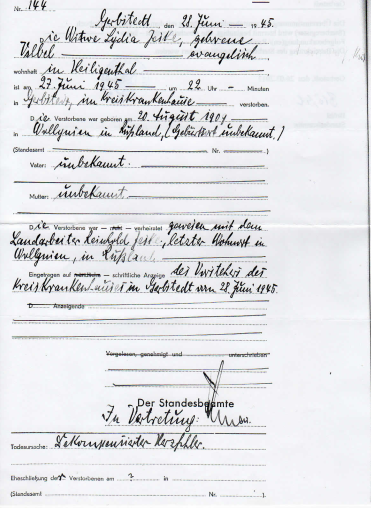 Nr. 144
Gerbstedt, den 28. Juni 1945.
Die Witwe Lydia Jeske, geborene
evangelisch
wohnhaft in Heiligenthal
ist am 27. Juni 1945 um 22 Uhr - Minuten
in Gerbstedt, im Kreiskrankenhause verstorben.
Die Verstorbene war geboren am 20. August 1901
in Wollynien in Rußland, (Geburtsort unbekannt.)
(Standesamt Nr. )
Vater: unbekannt.
Mutter: unbekannt.
Die Verstorbene war – nicht – verheiratet gewesen mit dem
Landarbeiter Reinhold Jeske, letzter Wohnort in
Wollynien, in Rußland.
Eingetragen auf mündliche – schriftliche Anzeige des Vorstehers des
Kreiskrankenhauses in Gerbstedt vom 28. Juni 1945.
D Anzeigende
Vorgelesen, genehmigt und unterschrieben
Der Standesbeamte
In Vertretung:
Todesursache: Dekompensierter Herzfehler.
Eheschließung der Verstorbenen am ? in
(Standesamt Nr. ).